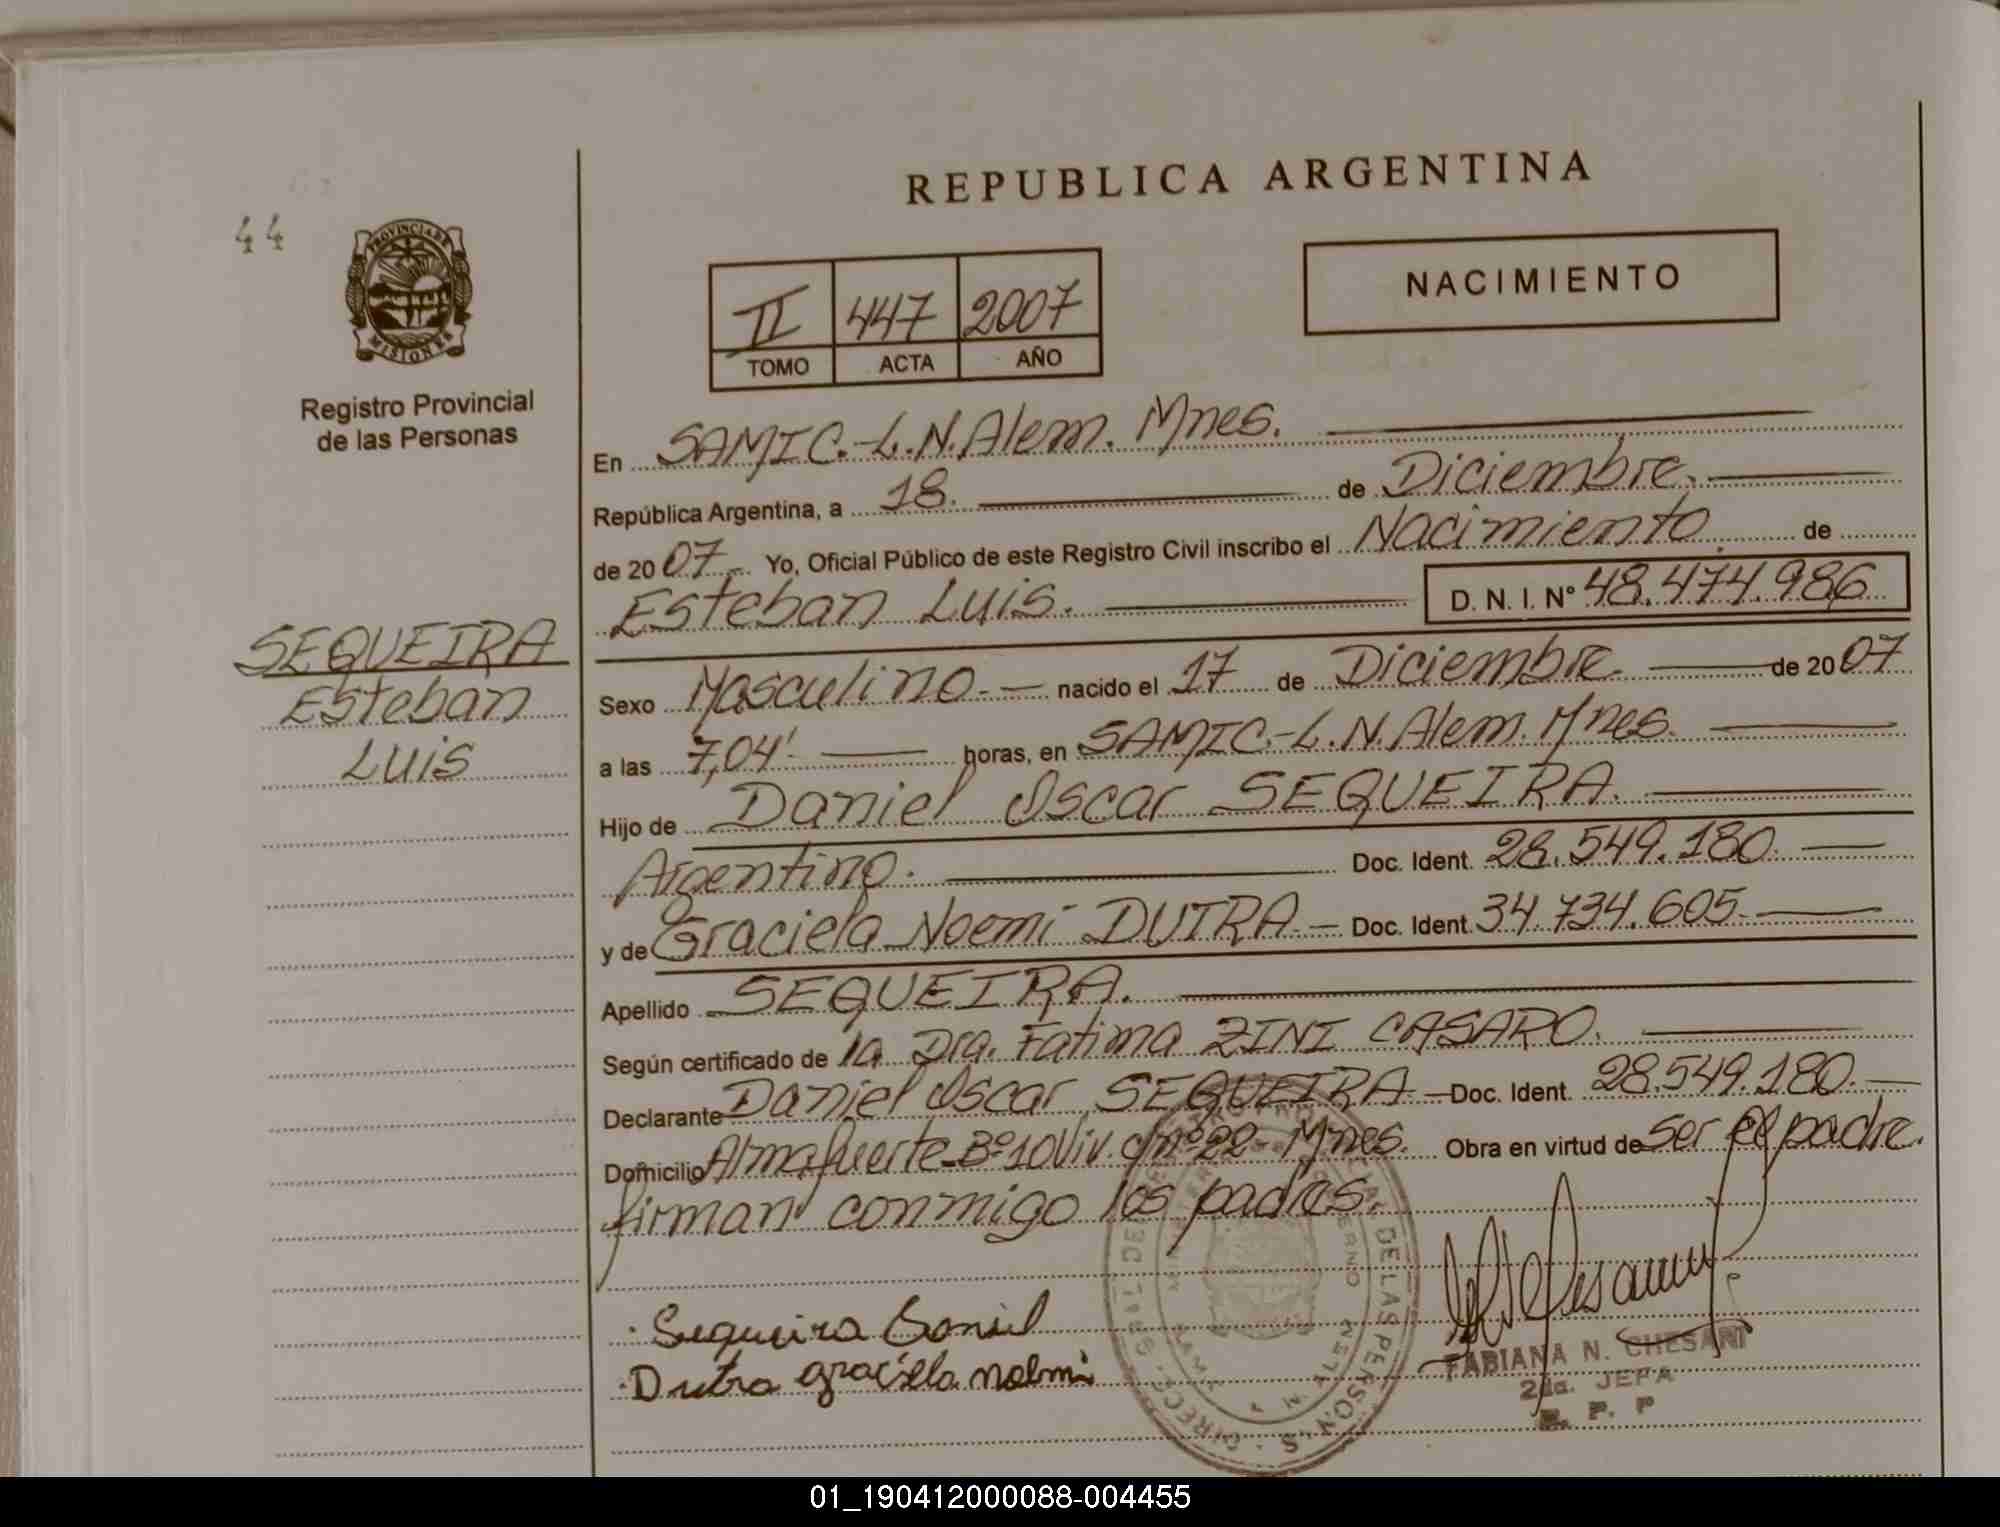 REPUBLICA ARGENTINA
44
PROVINCIA DE
MISIONES
Registro Provincial
de las Personas
II 447 2007
TOMO ACTA AÑO
NACIMIENTO
En SAMIC.-L.N.Alem. Mnes.
República Argentina, a 18. de Diciembre.
de 2007.- Yo, Oficial Público de este Registro Civil inscribo el Nacimiento. de
Esteban Luis. D. N. I. Nº 48.474.986
SEQUEIRA
Esteban
Luis
Sexo Masculino.- nacido el 17 de Diciembre. de 2007
a las 7,04' horas, en SAMIC.-L.N.Alem. Mnes.
Hijo de Daniel Oscar SEQUEIRA.
Argentino. Doc. Ident. 28.549.180.
y de Graciela Noemi DUTRA.- Doc. Ident. 34.734.605.-
Apellido SEQUEIRA.
Según certificado de la Dra. Fatima ZINI CASARO.
Declarante Daniel Oscar SEQUEIRA - Doc. Ident. 28.549.180.-
Domicilio Almafuerte-Bº10Viv. c/nº22- Mnes. Obra en virtud de ser el padre.
firman conmigo los padres.
Sequeira Daniel
Dutra graciela noemi
FABIANA N. CHESANI
2da. JEFA
R. P. P
01_190412000088-004455